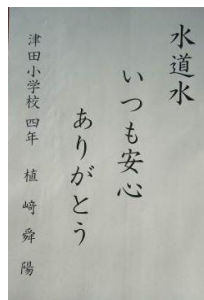 水道水
いつも安心
ありがとう
津田小学校 四年 植﨑 舜陽